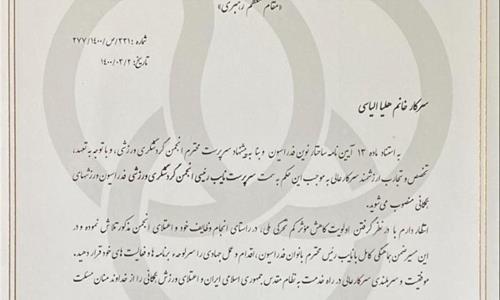 «مقام معظم رهبری»
شماره: ۲۳۱/ص/۱۴۰۰/۲۷۷
تاریخ: ۱۴۰۰/۰۳/۲
سرکار خانم هلیا الیاسی
به استناد ماده ۱۳ آیین نامه ساختار نوین فدراسیون و بنا به پیشنهاد سرپرست محترم انجمن گردشگری ورزشی، و با توجه به تعهد،
تخصص و تجارب ارزشمند سرکارعالی به موجب این حکم به سمت سرپرست نایب رئیس انجمن گردشگری ورزشی فدراسیون ورزشهای
همگانی منصوب می شوید.
انتظار دارم با در نظر گرفتن اولویت کاهش مؤثر کم تحرکی ملی، در راستای انجام وظایف خود و اعتلای انجمن مذکور تلاش نموده و در
این مسیر ضمن هماهنگی کامل با نایب رئیس محترم بانوان فدراسیون، اقدام و عمل جهادی را سرلوحه برنامه ها و فعالیت های خود قرار دهید.
موفقیت و سربلندی سرکارعالی در راه خدمت به نظام مقدس جمهوری اسلامی ایران و اعتلای ورزش همگانی را از خداوند منان مسئلت